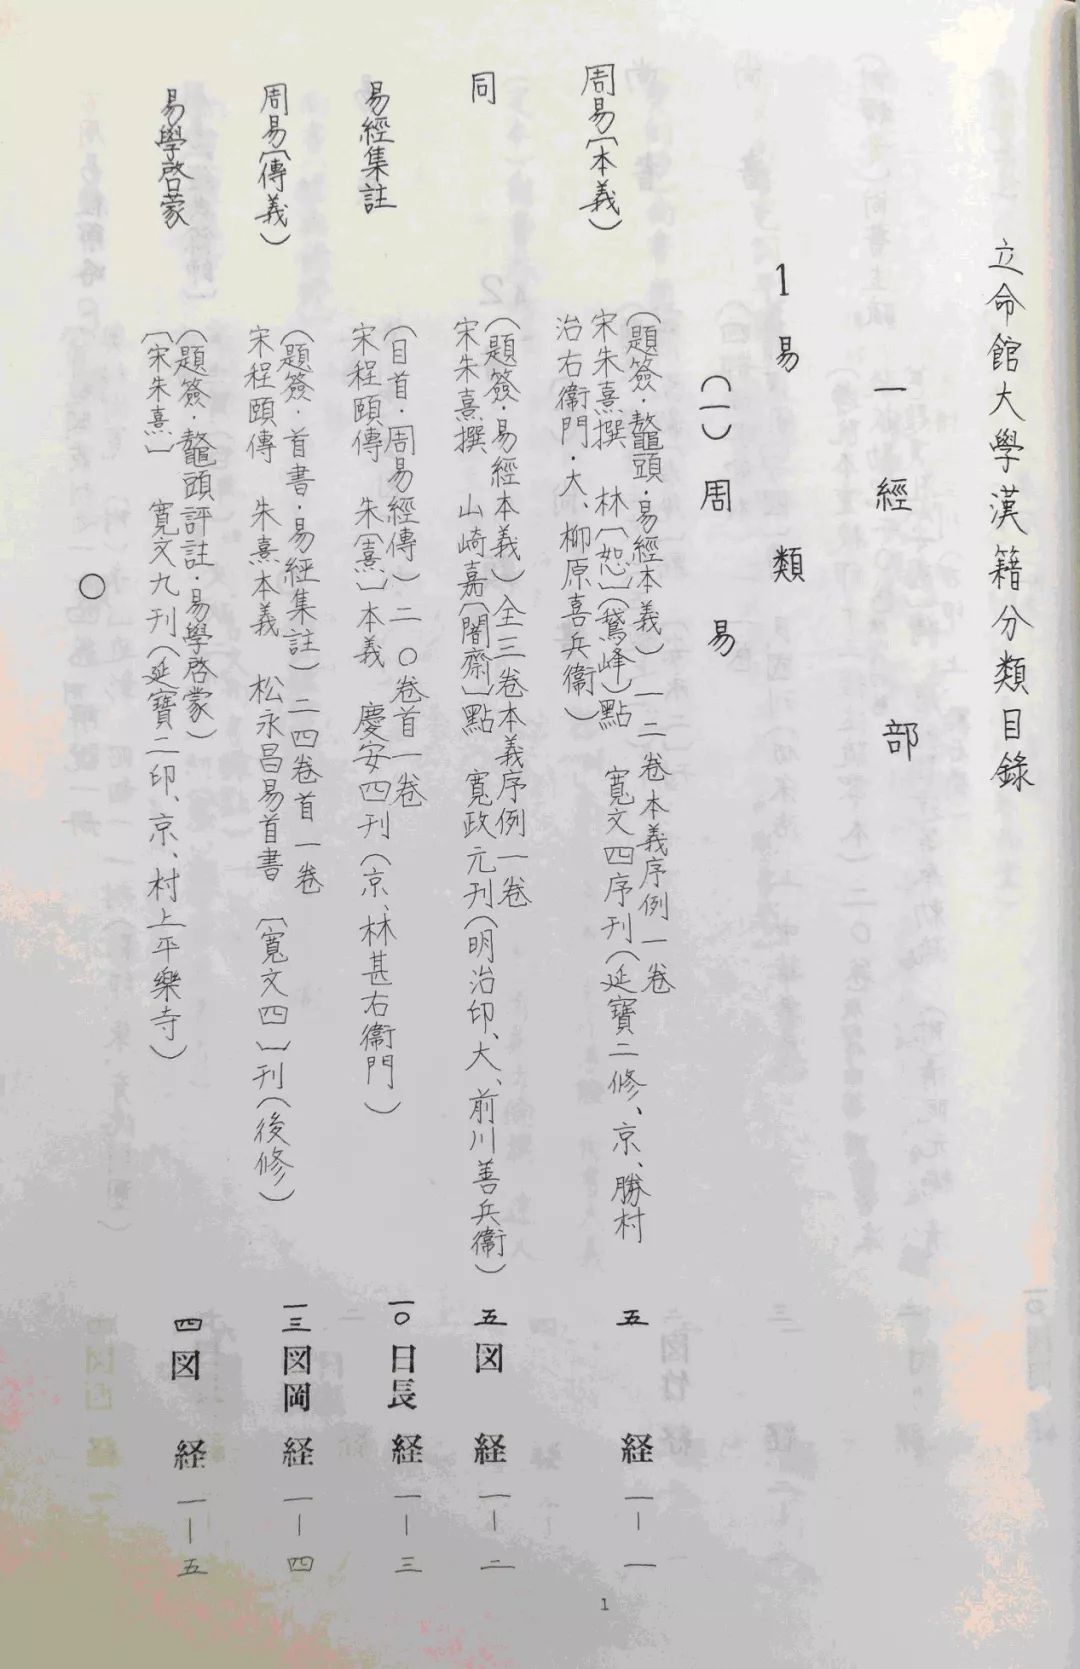 立命館大學漢籍分類目錄
一 經部
1 易類
(一)周易
周易〔本義〕
(題簽·鼇頭·易經本義)一二卷本義序例一卷
宋朱熹撰 林〔恕〕(鵞峰)點 寬文四序刊(延寶二修、京、勝村
治右衞門·大、柳原喜兵衞)
五 経 一—一
同
(題簽·易經本義)全三卷本義序例一卷
宋朱熹撰 山崎嘉〔闇齋〕點 寬政元刊(明治印、大、前川善兵衞)
五 図 経 一—二
易經集註
(目首·周易經傳)二〇卷首一卷
宋程頤傳 朱〔熹〕本義 慶安四刊(京、林甚右衞門)
一〇 日長 経 一—三
周易〔傳義〕
(題簽·首書·易經集註)二四卷首一卷
宋程頤傳 朱熹本義 松永昌易首書 〔寬文四〕刊(後修)
一三 図岡 経 一—四
易學啓蒙
(題簽·鼇頭評註·易學啓蒙)
〔宋朱熹〕 寬文九刊(延寶二印、京、村上平樂寺)
四 図 経 一—五
〇
1